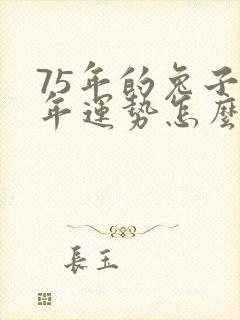 75年的兔子
年運勢怎麼
長玉